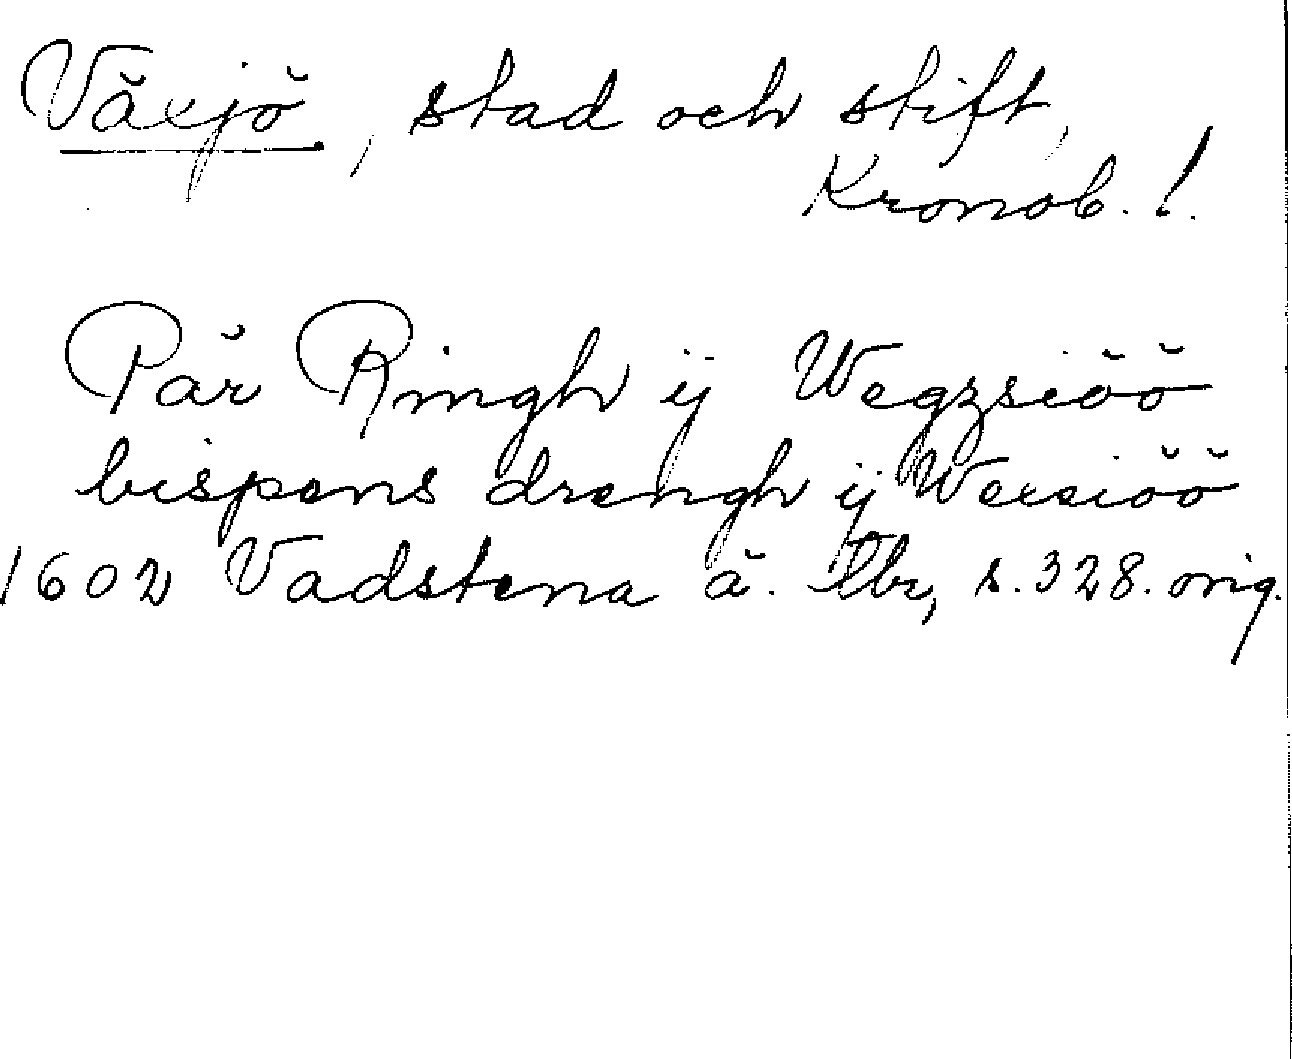 Växjö, stad och stift,
Kronob. l.
Pär Ringh ij Wegzsiöö
bispens drengh ij Wexsiöö
1602 Vadstena ä. tbr, s. 328. orig.